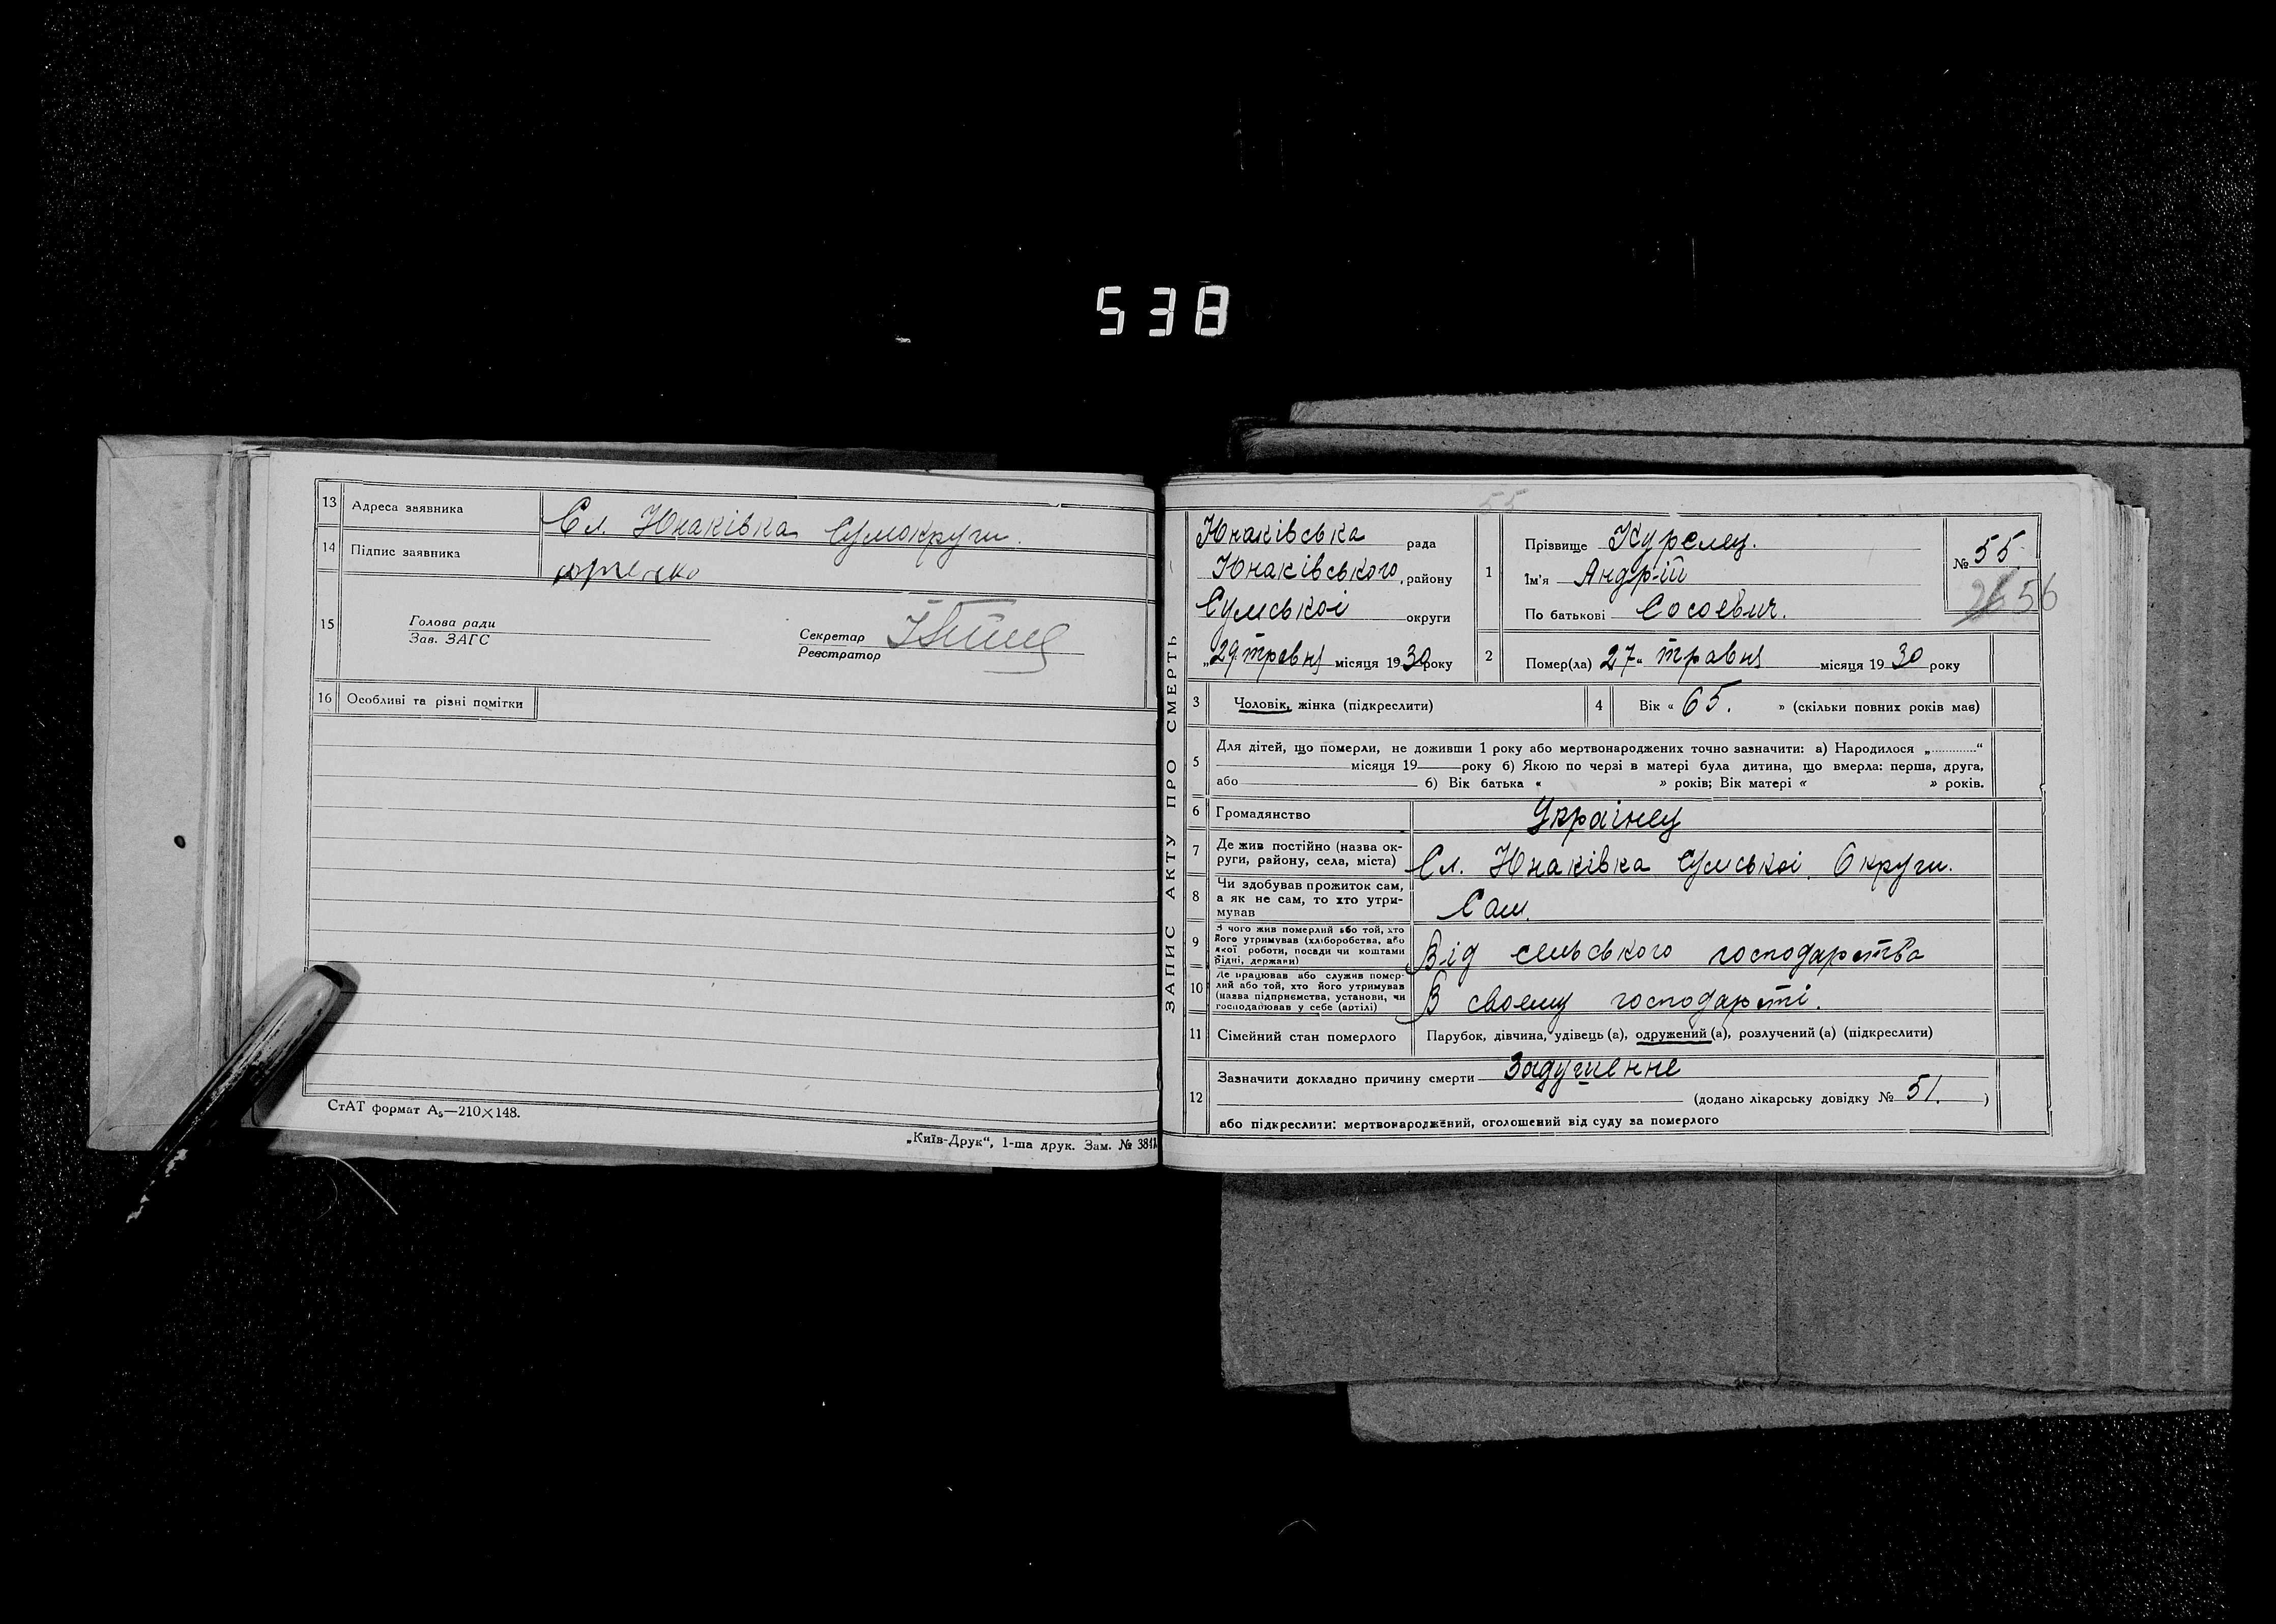 538
13 Адреса заявника Сл. Юнаківка Сумокруги.
14 Підпис заявника
15 Голова ради
Зав. ЗАГС
Секретар
Реєстратор
16 Особливі та різні помітки
СтАТ формат А₅—210×148.
„Київ-Друк“, 1-ша друк. Зам. № 3841
ЗАПИС АКТУ ПРО СМЕРТЬ —
55
Юнаківська рада
Юнаківського району
Сумської округи
„29 травня місяця 1930 року
1 Прізвище Курелец.
Ім'я Андрій
По батькові Сосоевич.
№ 55.
26 56
2 Помер(ла) 27 „ травня місяця 1930 року
3 Чоловік, жінка (підкреслити)
4 Вік « 65. » (скільки повних років має)
5 Для дітей, що померли, не доживши 1 року або мертвонароджених точно зазначити: а) Народилося „............“
місяця 19 року б) Якою по черзі в матері була дитина, що вмерла: перша, друга,
або б) Вік батька « » років; Вік матері « » років.
6 Громадянство Украінец
7 Де жив постійно (назва ок-
руги, району, села, міста) Сл. Юнаківка Сумськоі Округи.
8 Чи здобував прожиток сам,
а як не сам, то хто утри-
мував Сам.
9 З чого жив померлий або той, хто
його утримував (хліборобства, або
якої роботи, посади чи коштами
рідні, держави) Від сельського господарства
10 Де працював або служив помер-
лий або той, хто його утримував
(назва підприємства, установи, чи
господарював у себе (артілі) В своему господарсті.
11 Сімейний стан померлого Парубок, дівчина, удівець (а), одружений (а), розлучений (а) (підкреслити)
12 Зазначити докладно причину смерти Задушенне
(додано лікарську довідку № 51. )
або підкреслити: мертвонароджений, оголошений від суду за померлого